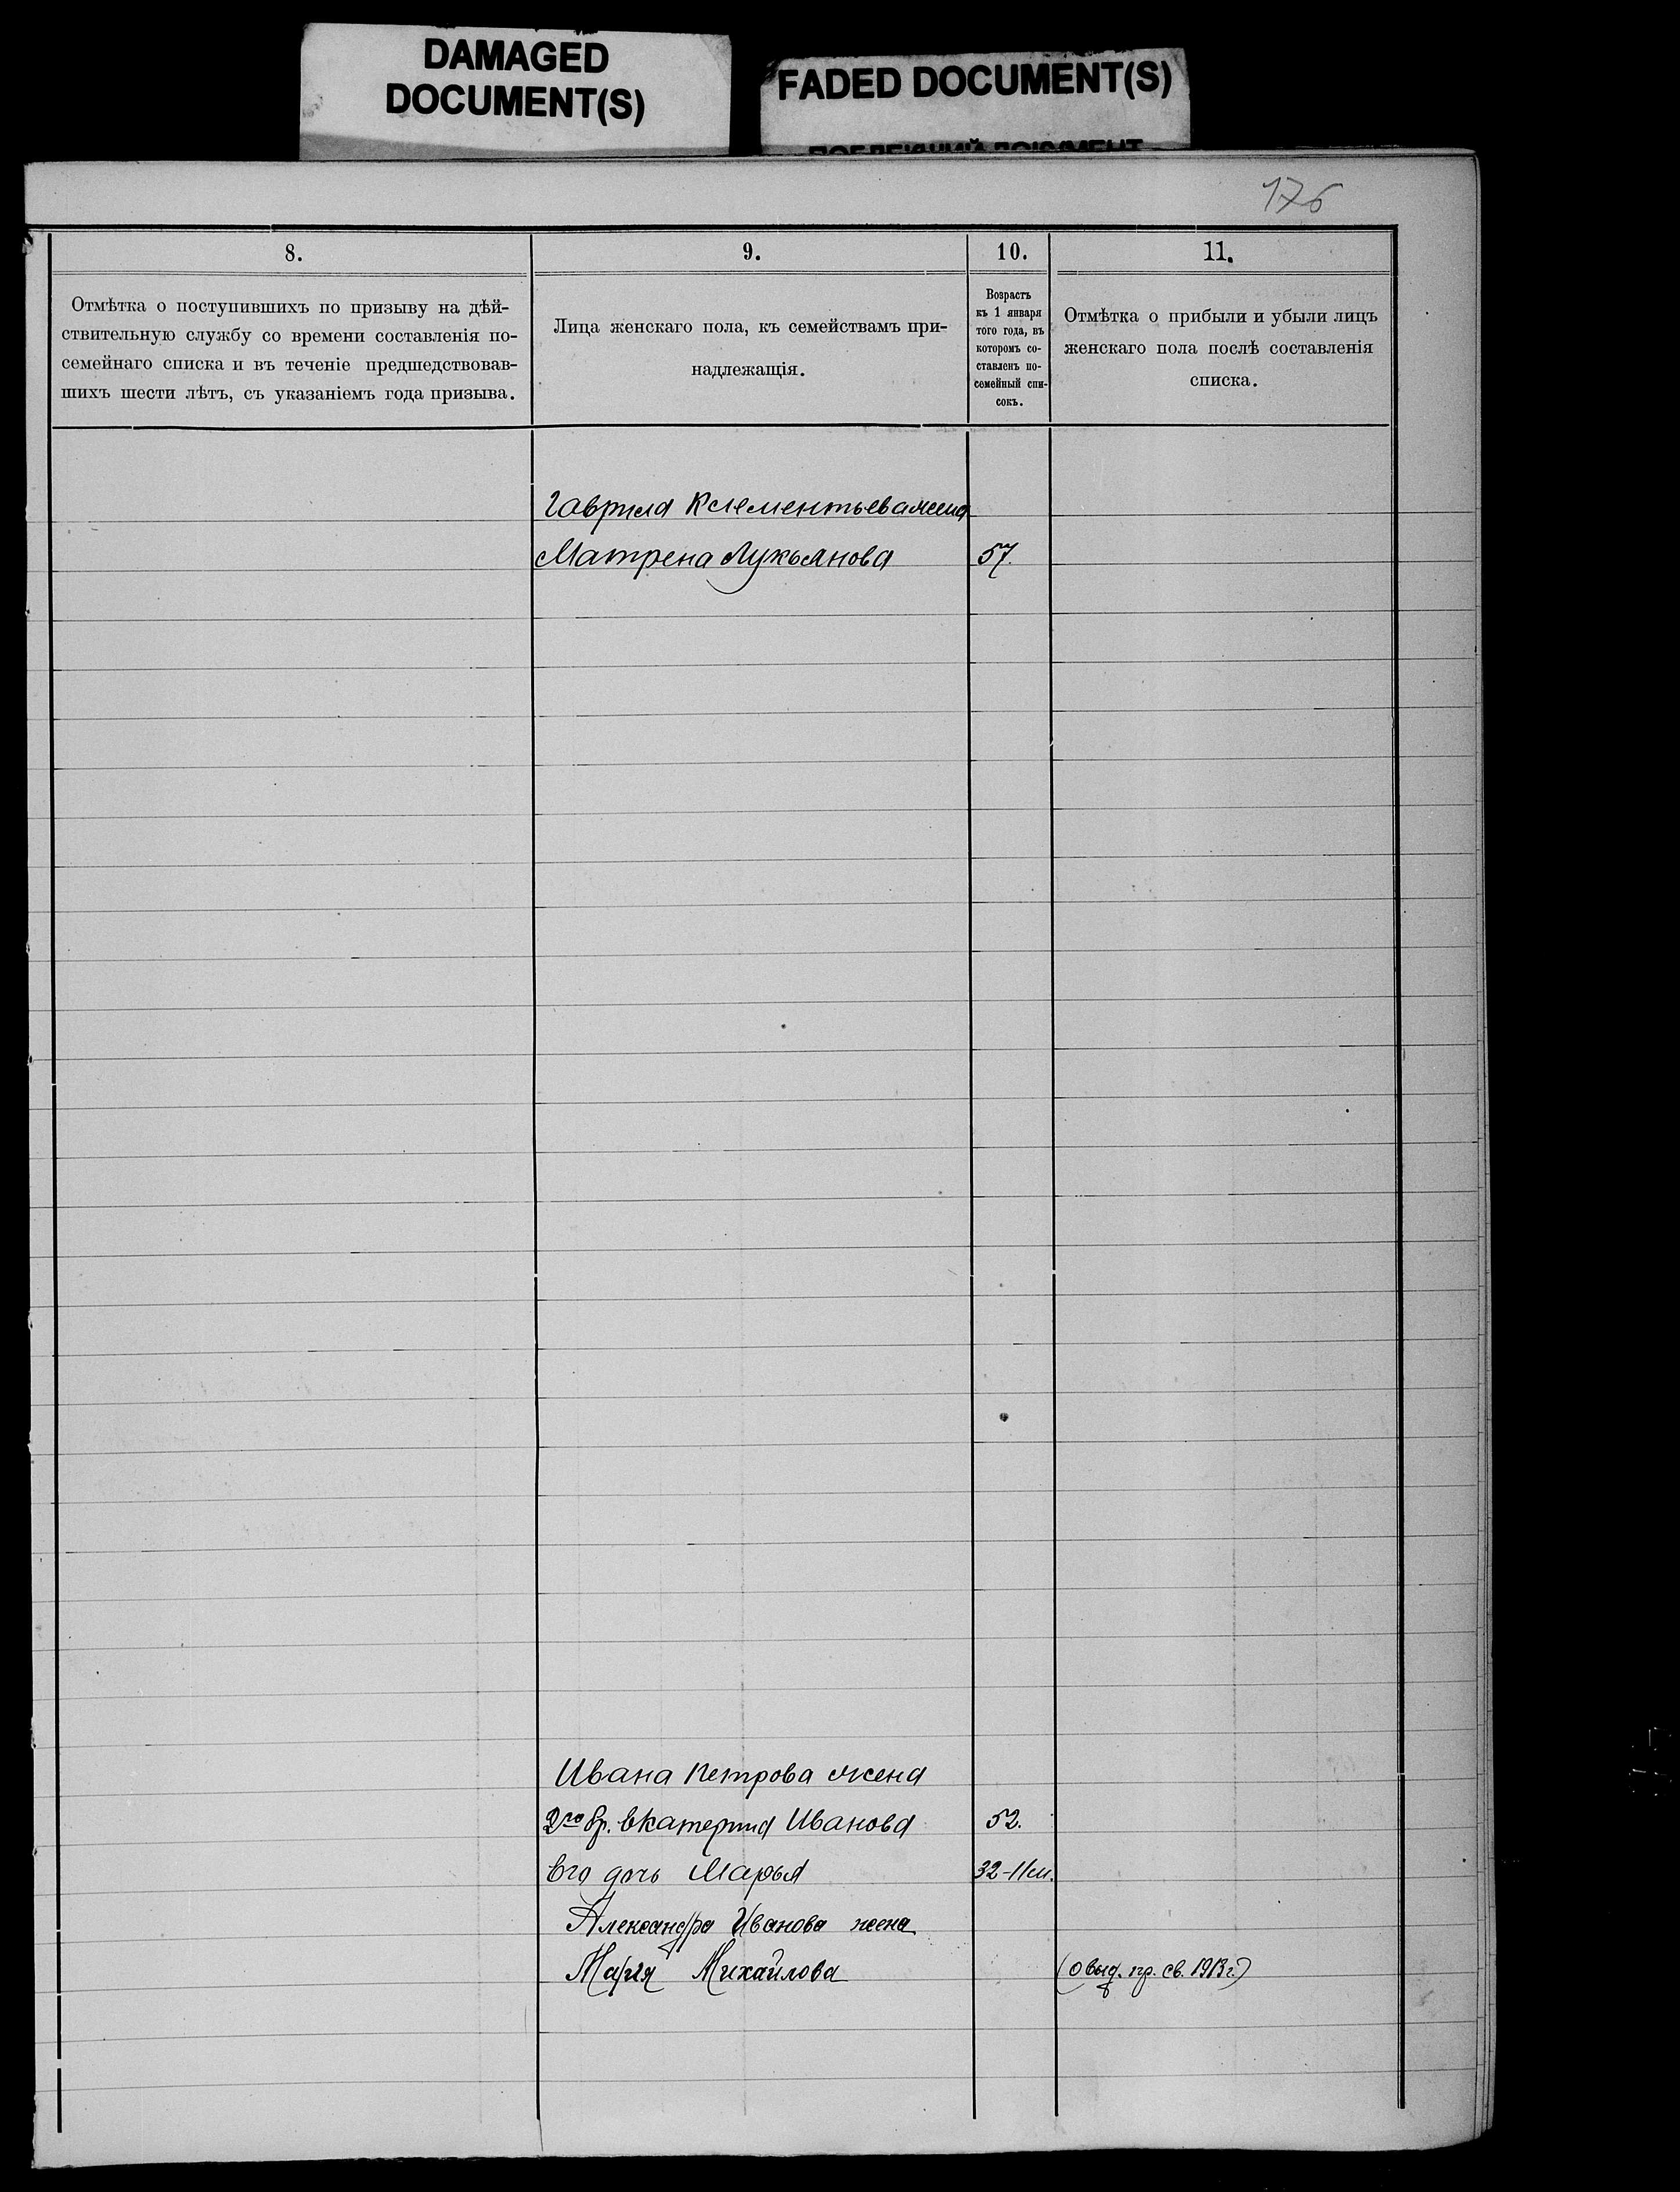 DAMAGED
DOCUMENT(S)
FADED DOCUMENT(S)
176
8.
9.
10.
11.
Отмѣтка о поступившихъ по призыву на дѣй-
ствительную службу со времени составленія по-
семейнаго списка и въ теченіе предшедствовав-
шихъ шести лѣтъ, съ указаніемъ года призыва.
Лица женскаго пола, къ семействамъ при-
надлежащія.
Возрастъ
къ 1 января
того года, въ
которомъ со-
ставленъ по-
семейный спи-
сокъ.
Отмѣтка о прибыли и убыли лицъ
женскаго пола послѣ составленія
списка.
Гаврила Клементьева жена
Матрена Лукьянова 57.
Ивана Петрова жена
2го бр. Екатерина Иванова 52.
Его дочь Марья 32-11м.
Александра Иванова жена
Марія Михайлова (о выд. пр. св. 1913 г.)